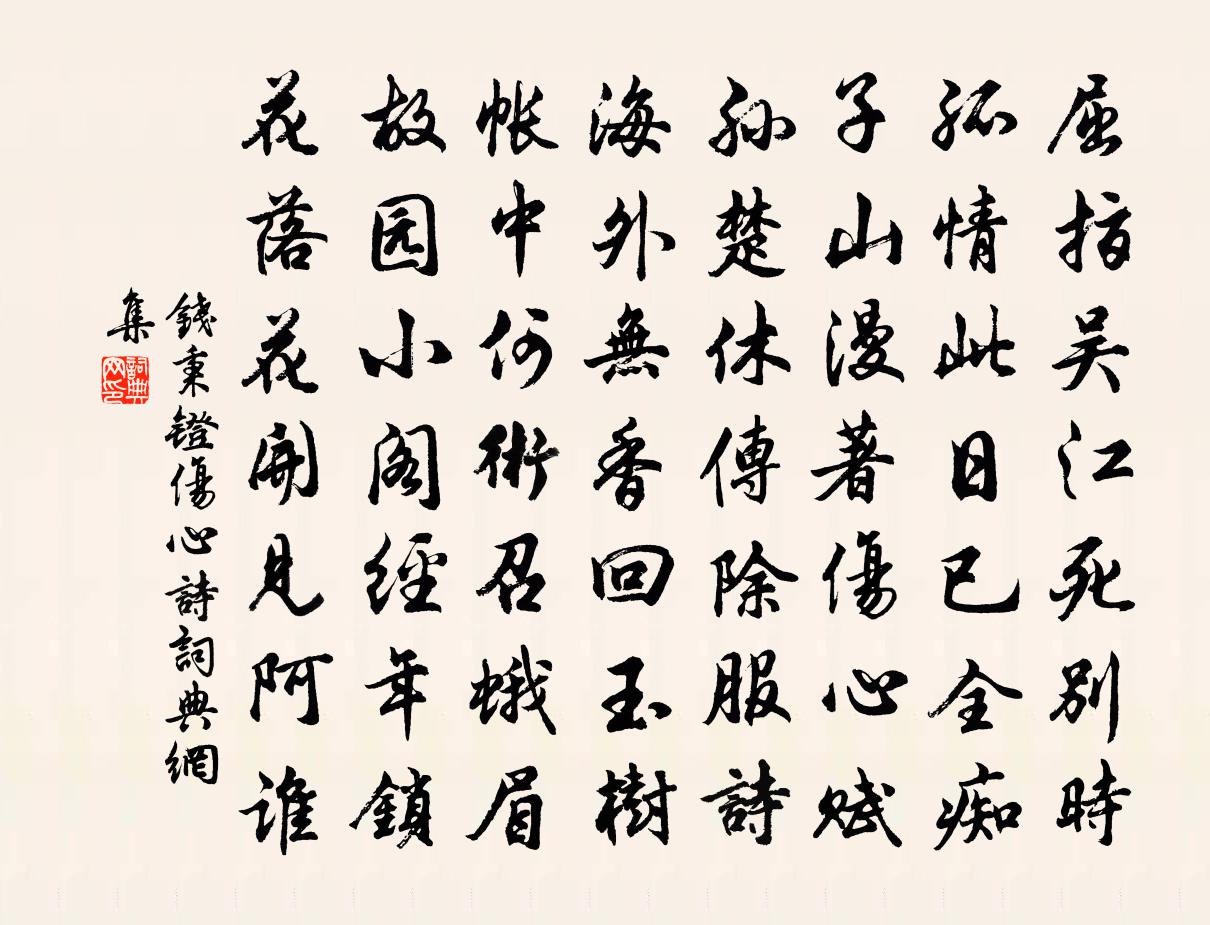 屈指吴江死别時
孤情此日已全痴
子山漫著傷心赋
孙楚休傳除服詩
海外無香回玉樹
帐中何術召蛾眉
故园小阁經年鎖
花落花開見阿谁
錢秉鐙傷心詩詞典網
集
詞典
网印